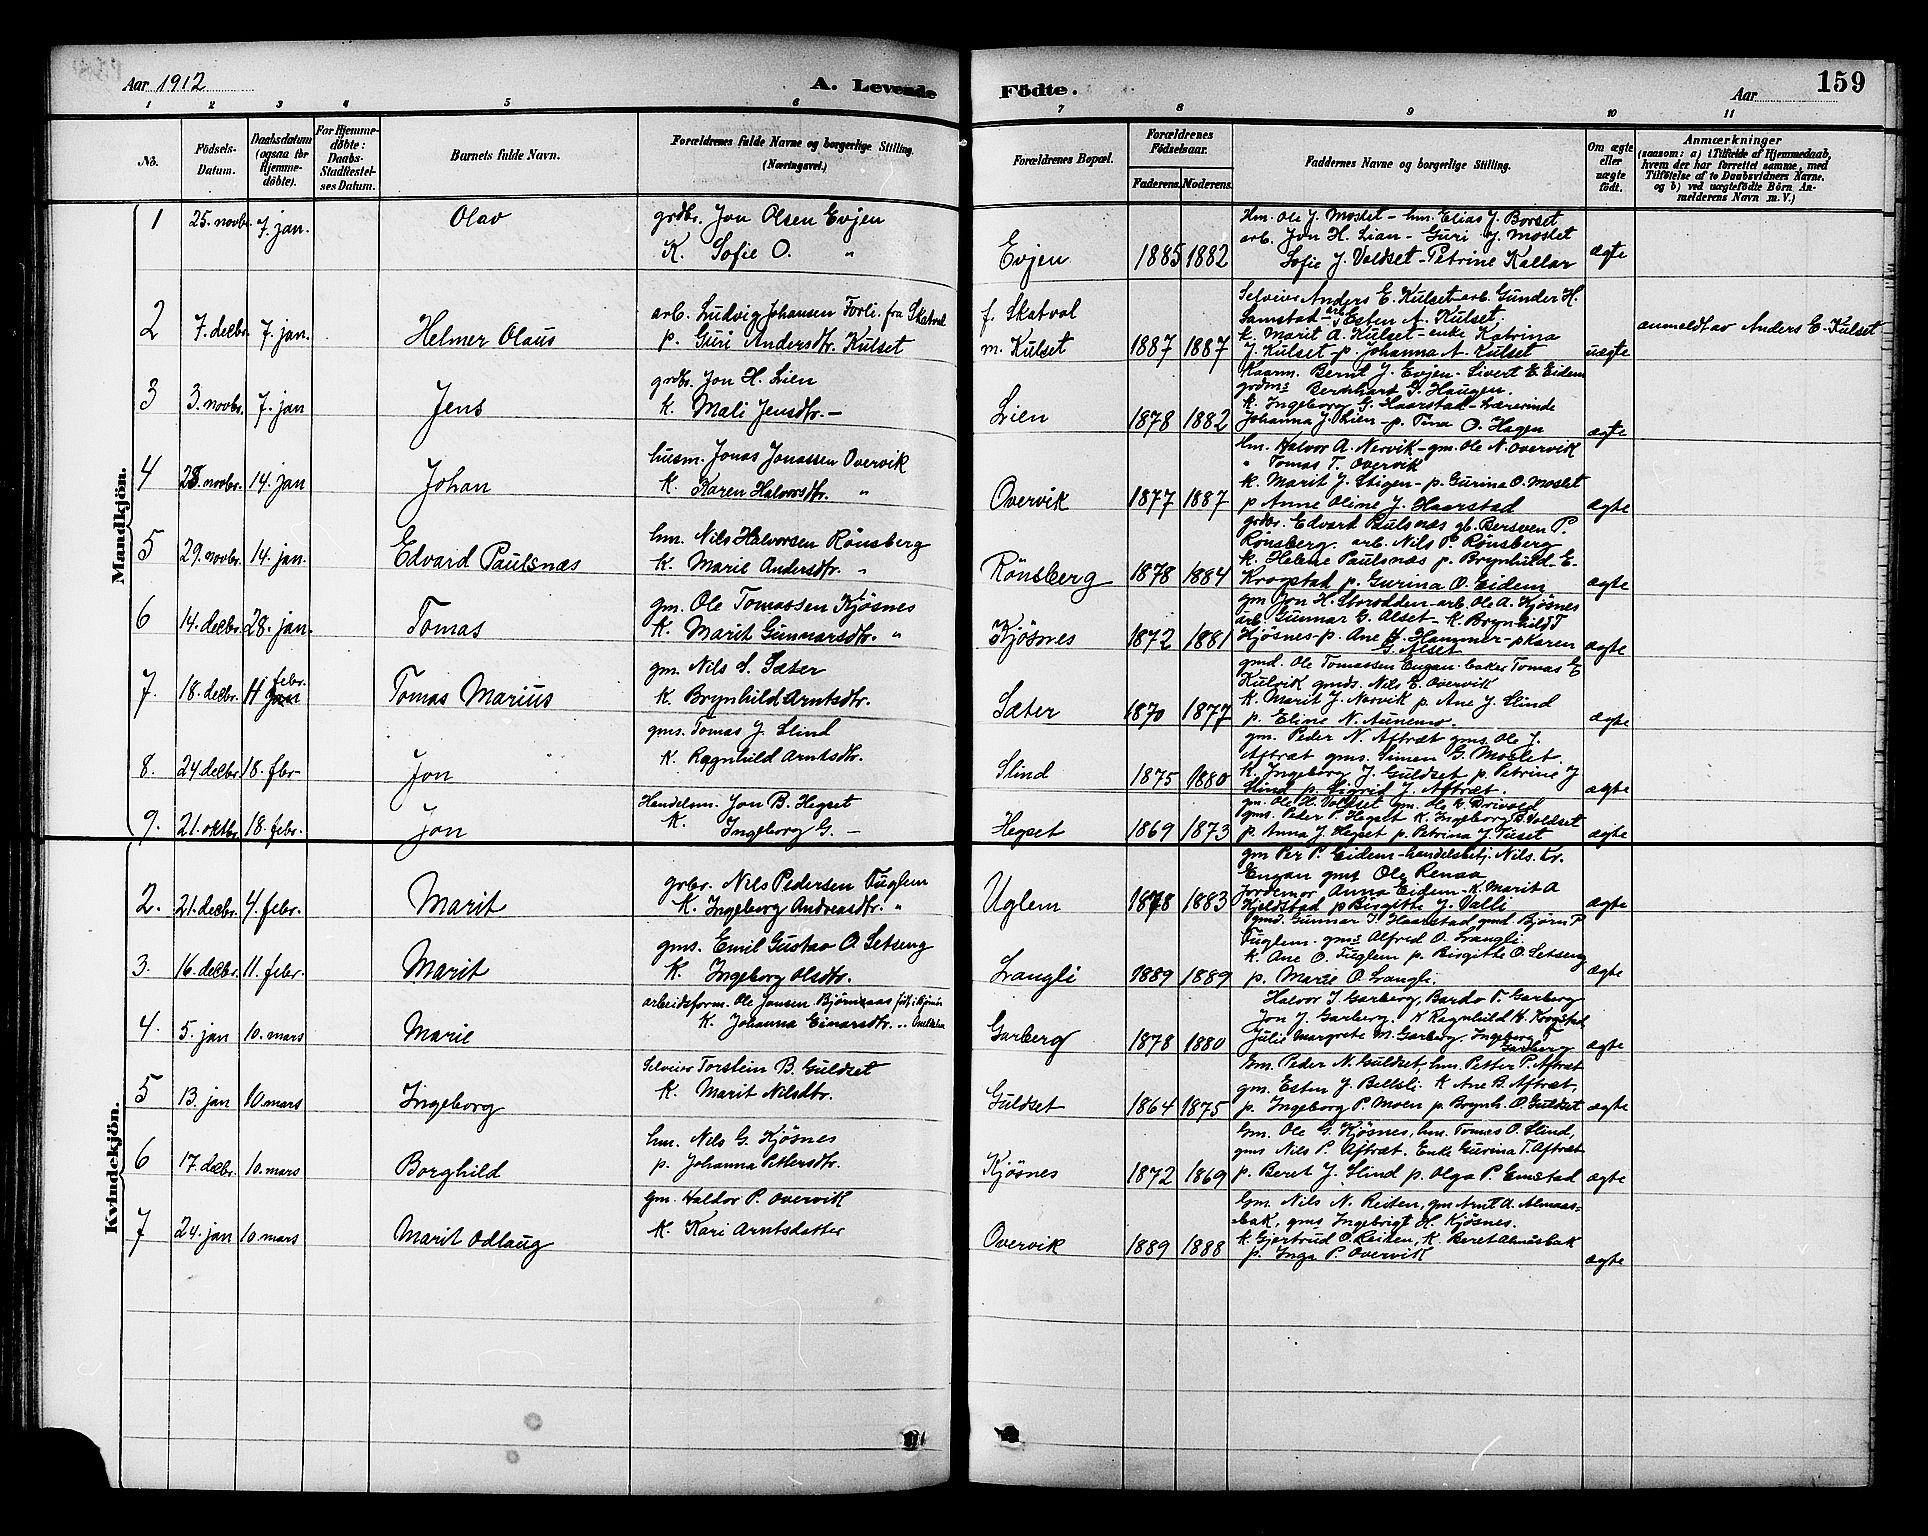 Aar 1912
A. Levende Födte.
Aar
159
1 2 3 4 5 6 7 8 9 10 11
No.
Födsels-Datum.
Daabsdatum (ogsaa for Hjemme-döbte).
For Hjemme-döbte: Daabs-Stadfæstel-ses Datum.
Barnets fulde Navn.
Forældrenes fulde Navne og borgerlige Stilling.
(Næringsvei.)
Forældrenes Bopæl.
Forældrenes Födselsaar.
Faderens. Moderens.
Faddernes Navne og borgerlige Stilling.
Om ægte eller uægte födt.
Anmærkninger
(saasom: a) i Tilfælde af Hjemmedaab, hvem der har forrettet samme, med Tilföielse af to Daabsvidners Navne, og b) ved uægtefödte Börn Anmelderens Navn m. V.)
Mandkjön.
1 25. novbr. 7. jan. Olav
grdbr. Jon Olsen Evjen
K. Sofie O. "
Evjen 1885 1882
Hm. Ole J. Moslet - hm. Elias J. Borset
arb. Jon H. Lian - Guri J. Moslet
Sofie J. Voldset - Petrine Kallar
ægte
2 7. decbr. 7. jan. Helmer Olaus
arb. Ludvig Johansen Forli. fra Skatval
p. Guri Andersdtr. Kulset
f. Skatval
m. Kulset 1887 1887
Selveier Anders E. Kulset - arb. Gunder H.
Samstad - arb. Esten A. Kulset.
k. Marit A. Kulset - enke Katrina
J. Kulset - p. Johanna A. Kulset
uægte
anmeldt av Anders E. Kulset
3 3. novbr. 7. jan Jens
grdbr. Jon H. Lien
K. Mali Jensdtr. -
Lien 1878 1882
Kaarm. Bernt J. Evjen - Sivert E. Eidem
grdms Bernhard G. Haugen.
k. Ingeborg G. Haarstad - Lærerinde
Johanna J. Lien - p. Tina O. Hagen
ægte
4 28. novbr. 14. jan Johan
husm. Jonas Jonassen Overvik
K. Karen Halvorsdtr. "
Overvik 1877 1887
hm. Halvor A. Nervik - gm. Ole N. Overvik
" Tomas T. Overvik
k. Marit J. Stigen - p. Gurina O. Moslet
p Anne Oline J. Haarstad
ægte
5 29. novbr. 14. jan. Edvard Paulsnæs
hm. Nils Halvorsen Rönsberg
K. Marie Andersdtr. "
Rönsberg 1878 1884
grdbr. Edvard Paulsnæs gb. Bersven P.
Rönsberg. arb. Nils P. Rönsberg
k. Helene Paulsnæs p. Brynhild E.
Krogstad p. Gurina O. Eidem
ægte
6 14. decbr. 28. jan. Tomas
gm. Ole Tomassen Kjösnes
K. Marit Gunnarsdtr. "
Kjösnes 1872 1881
gm Jon H. Storodden - arb. Ole A. Kjösnes
arb Gunnar G. Alset - K. Brynhild T
Kjösnes - p. Ane H. Hammer - p Karen
G. Alset
ægte
7. 18. decbr. 11 jan febr. Tomas Marius
gm. Nils S. Sæter
K. Brynhild Arntsdtr.
Sæter 1870 1877
gmd. Ole Tomassen Engan. baker Tomas E
Kulvik gmds. Nils E. Overvik
k. Marit J. Nervik p. Ane J Slind
p. Eline N. Aunemo.
ægte
8. 24 decbr. 18. fbr- Jon
gms. Tomas J. Slind
K. Ragnhild Arntsdtr.
Slind 1875 1880
gm. Peder N. Aftræt gms. Ole J.
Aftræt gms. Simen G. Moslet
K. Ingeborg J. Guldset p. Petrine J
Slind p. Sigrid J. Aftræt.
ægte
9. 21. oktbr. 18. febr. Jon
Handelsm. Jon B. Hegset
K. Ingeborg G. -
Hegset 1869 1873
gm. Ole H. Voldset gm. Ole K. Drivold
gms. Peder P. Hegset K. Ingeborg B. Voldset
p. Anna J. Hegset p. Petrina J. Tuset
ægte
Kvindekjön.
2. 21. decbr. 4. febr. Marit
grbr. Nils Pedersen Fuglem
K. Ingeborg Andreasdtr. "
Uglem 1878 1883
gm Per P. Eidem - handelsbetj. Nils. Kr.
Engan gms Ole Renaa
Jordemor Anna Eidem - K. Marit A
Kjeldstad p Birgithe J. Valli
ægte
3. 16. decbr. 11. febr. Marit
gms. Emil Gustav O. Setseng
K. Ingeborg Olsdtr.
Langli 1889 1889
gmd. Gunnar J Haarstad gmd. Björn P
Fuglem. gms Alfred O. Langli.
k. Ane O. Fuglem p. Birgitte O. Setseng
p. Marie O. Langli.
ægte
4. 5. jan 10. mars Marie
arbeidsform. Ole Jonsen Björnsaas
K. Johanna Einarsdtr. "
Garberg 1878 1880
Halvor J. Garberg, Bardo T. Garberg
Jon J. Garberg. K Ragnhild H. Krogstad
Julie Margrete M. Garberg. Ingeborg J
Garberg
ægte
5 13. jan 10. mars Ingeborg
Selveier Torstein B. Guldset
K. Marit Nilsdtr.
Guldset 1864 1875
Gm. Peder N. Guldset, hm. Petter P. Aftræt
gm. Esten J. Bellsli. K Ane B. Aftræt,
p. Ingeborg P. Moen p. Brynh. O. Guldset
ægte
6 17. decbr. 10. mars Borghild
hm. Nils G. Kjösnes
p. Johanna Pettersdtr.
Kjösnes 1872 1869
Gm. Ole G. Kjösnes, hm. Tomas O. Slind,
gms Nils P. Aftræt. Enke Gurina T. Aftræt
p. Beret J. Slind p. Olga P. Emstad
ægte
7 24. jan 10. mars Marit Odlaug
gm. Haldor P. Overvik
K. Kari Arntsdatter
Overvik 1889 1888
Gm. Nils N. Reiten, gm Arnt A. Almaas-
bak, gms Ingebrigt H. Kjösnes.
k. Gjertrud O. Reiten, K. Beret Almaasbak
p. Inga P. Overvik
ægte